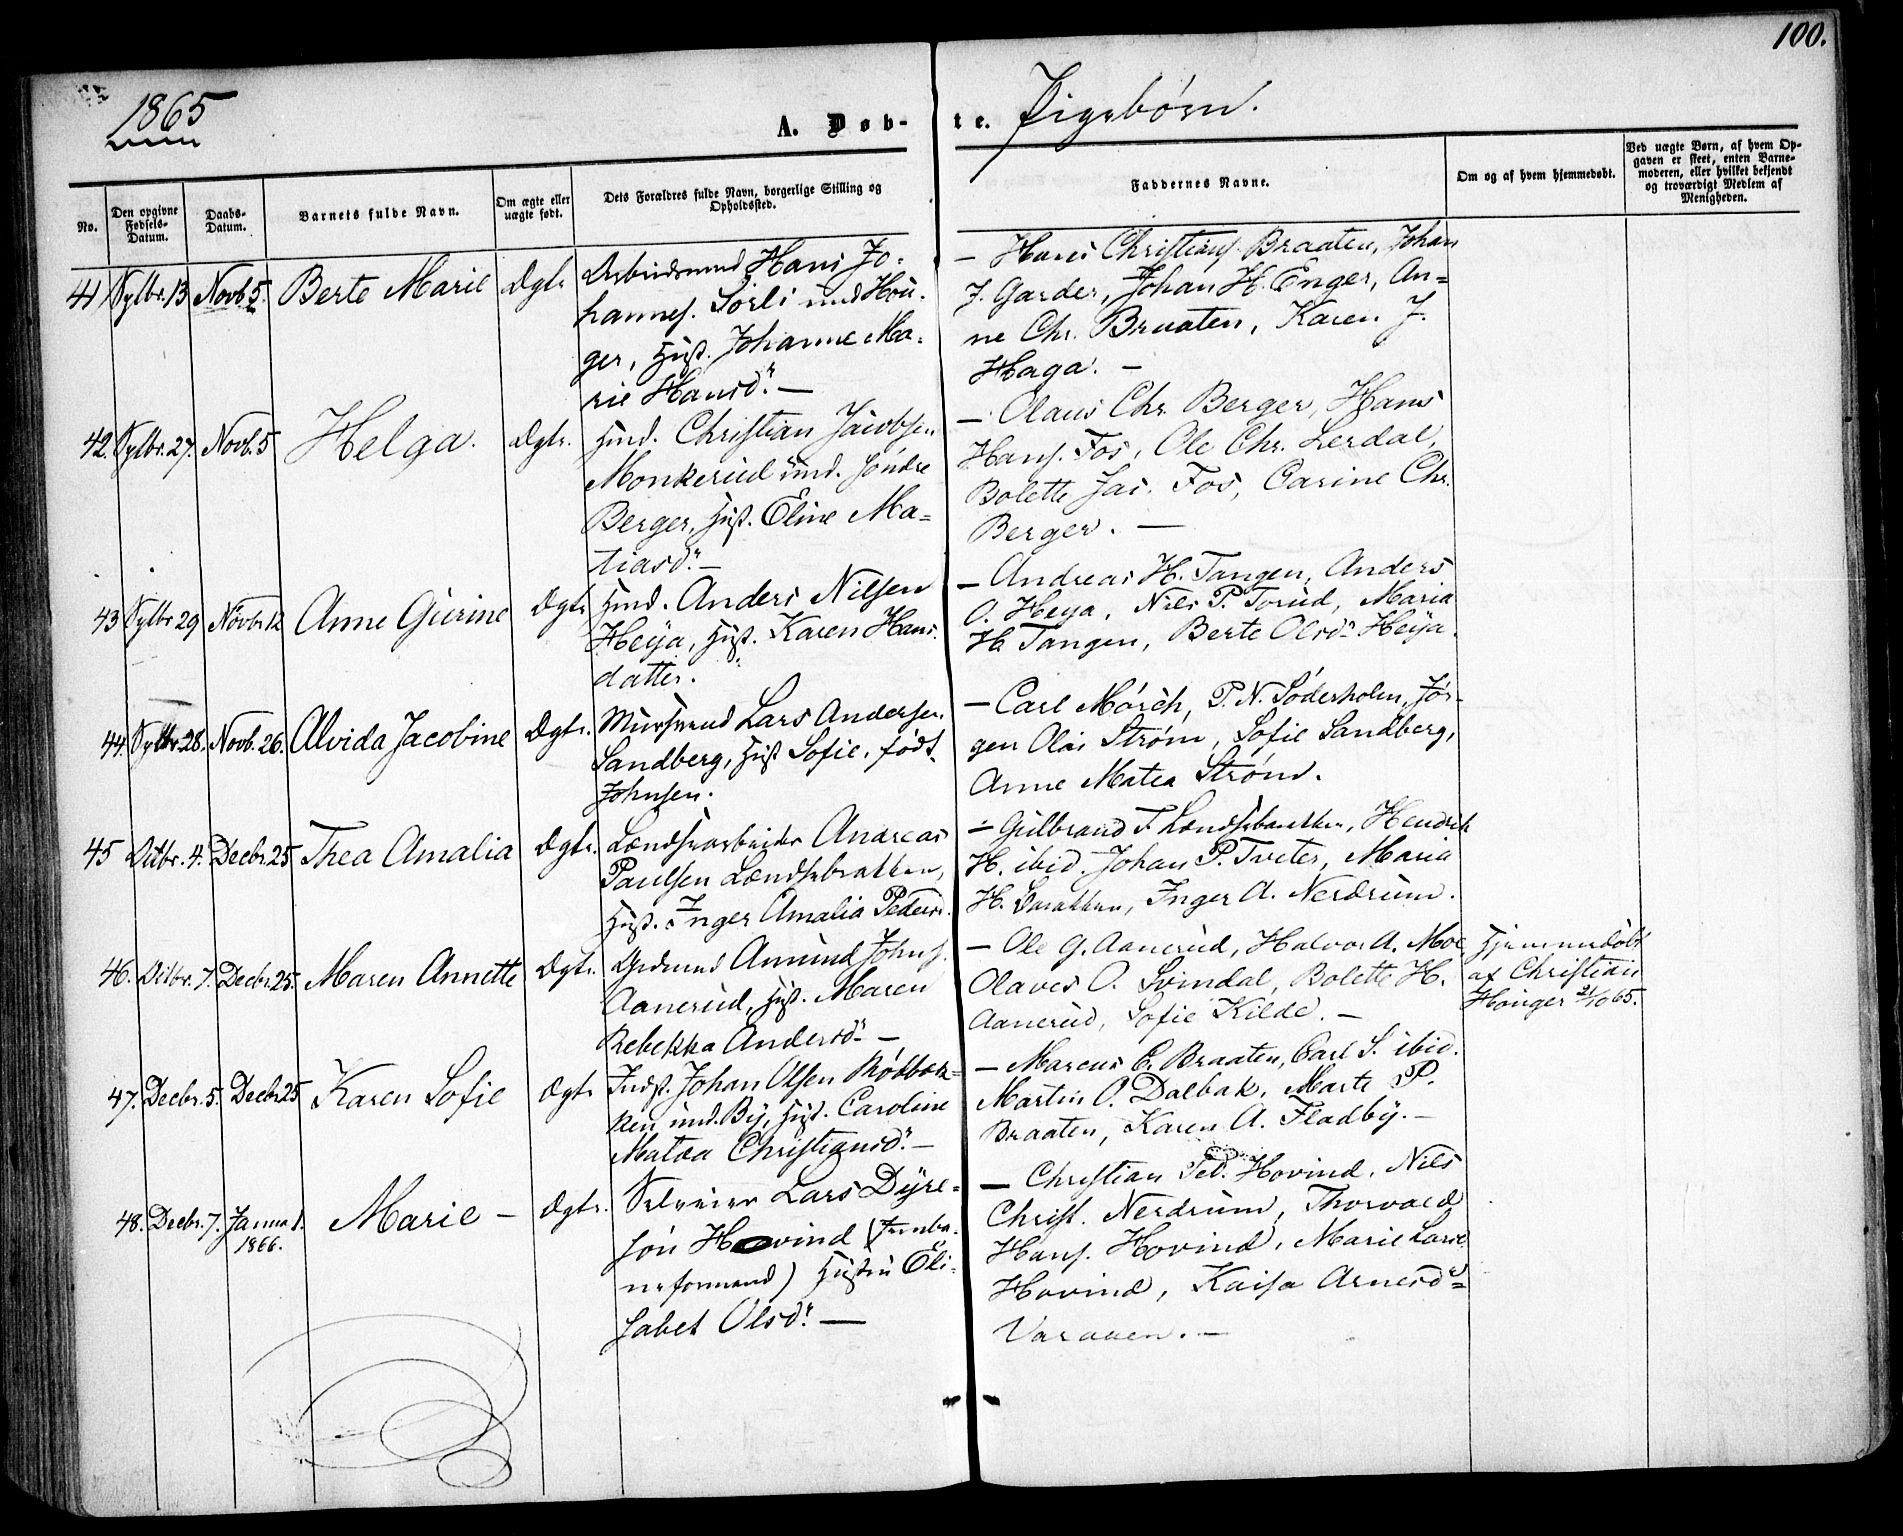 100.
1865
A. Døb-
te. Pigebørn.
No.
Den opgivne Fødsels-Datum.
Daabs-Datum.
Barnets fulde Navn.
Om ægte eller uægte født.
Dets Forældres fulde Navn, borgerlige Stilling og Opholdssted.
Faddernes Navne.
Om og af hvem hjemmedøbt.
Ved uægte Børn, af hvem Opgaven er skeet, enten Barnemoderen, eller hvilket bekjendt og troværdigt Medlem af Menigheden.
41 Sptbr. 13 Novb 5. Berte Marie Ægte
Arbeidsmand Hans Jo-
hannes. Sörli und Hou-
ger, Hust. Johanne Ma-
rie Hansd.
— Hans Christians. Braaten, Johan
J. Garder, Johan H. Enger, An-
ne Chr. Braaten, Karen J.
Haga. —
42. Sptbr. 27. Novb. 5 Helga. Ægte.
Husm. Christian Jacobsen
Monkerud und. söndre
Berger, Hust. Eline Ma-
tiasd. —
— Olaus Chr. Berger, Hans
Hans. Fos, Ole Chr. Lerdal,
Bolette Jac. Fos, Carine Chr.
Berger. —
43 Sptbr 29 Novbr 12 Anne Gurine Ægte
Husm. Anders Nilsen
Heya, Hust. Karen Hans-
datter.
— Andreas H. Tangen, Anders
O. Heya, Nils P. Torud, Maria
H. Tangen, Berte Olsd. Heya.
44. Sptbr. 28. Novb. 26. Alvida Jacobine Ægte.
Lars Andersen
Sandberg, Hust Sofie, født
Johnsen.
— Carl Mörch, P. N. Söderholm, Jör-
gen Olai Strøm, Sofie Sandberg,
Anne Matea Strøm.
45 Octbr. 4. Decbr. 25 Thea Amalia Ægte.
Lændsearbeider Andreas
Paulsen Lændsebakken,
Hust. Inger Amalia Pedersd.
— Gulbrand T Lændsebakken, Hendrik
H. ibid. Johan P. Tveter, Maria
H. Bakken, Inger A. Nerdrum.
46. Octbr. 7. Decbr. 25. Maren Annette Ægte.
Grdmnd Amund Johns.
Aanerud, Hust. Maren
Rebekka Andersd. —
— Ole G. Aanerud, Halvor A. Moe,
Olaves O. Svindal, Bolette H.
Aanerud, Sofie Kilde. —
Hjemmedöbt
af Christian
Houger 21/10 65.
47. Decbr. 5. Decbr 25 Karen Sofie Ægte
Indst. Johan Olsen Rödbak-
ken und. By, Hust. Caroline
Matea Christiansd. —
— Marcus E. Braaten, Carl S. ibid.
Martin O. Dalbak, Marte P.
Braaten, Karen A. Fladby. —
48. Decbr. 7. Janua 1. 1866. Marie — Ægte.
Selveier Lars Dyre-
sön Hovind (Jernba-
neformand) Hustru Eli-
sabet Olsd. —
— Christian Ped. Hovind, Nils
Christ. Nerdrum, Thorvald
Hans. Hovind, Marie Larsd.
Hovind, Kaisa Arnesd.
Varaaen. —